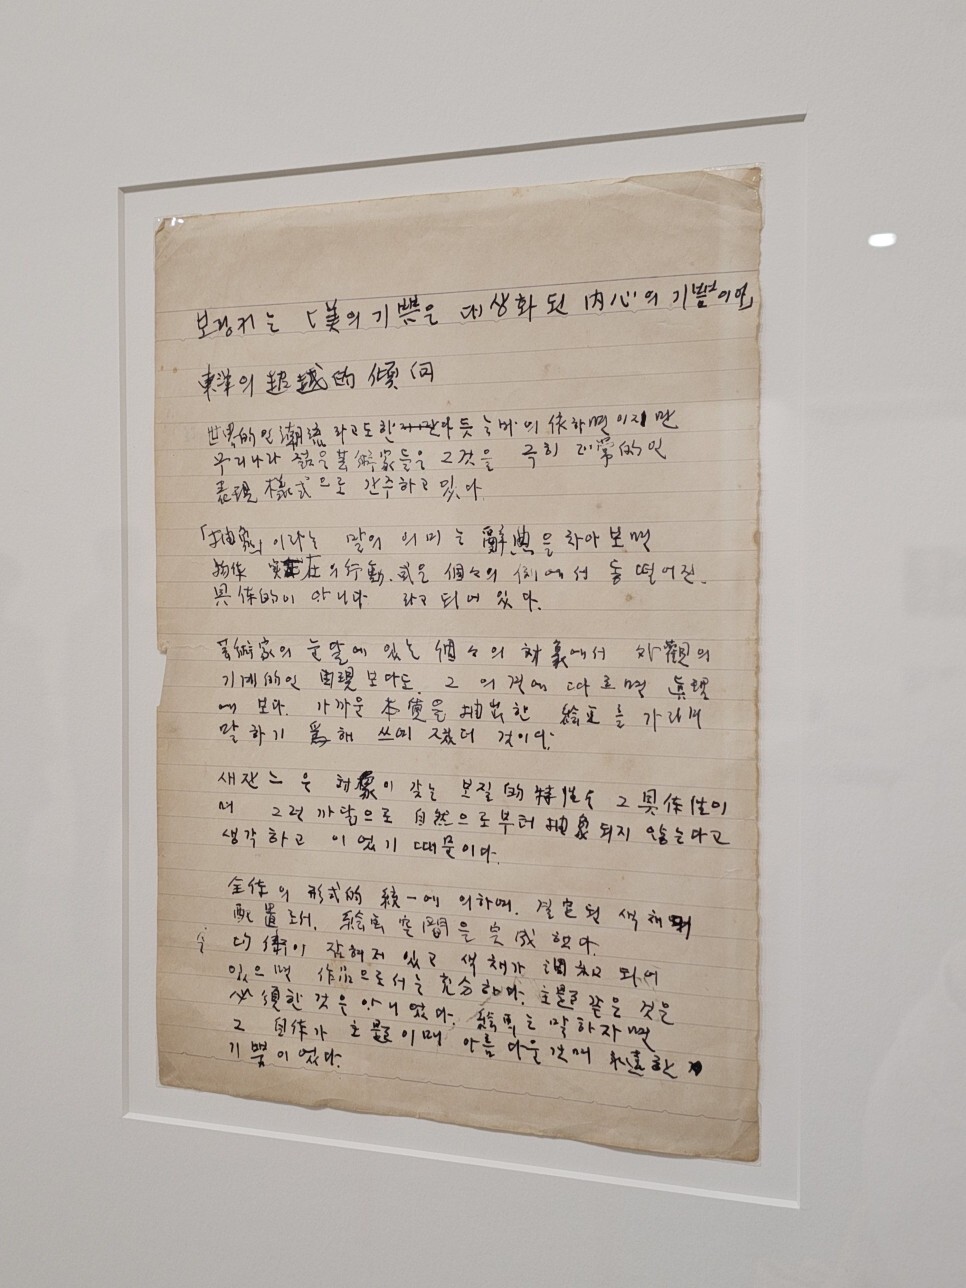 보링거는 「美의 기쁨은 대상화 된 內心의 기쁨이며」
東洋의 超越的 傾向
世界的인 潮流 라고도 한 듯 는 의 依하면 이지만
우리나라 젊은 芸術家들은 그것을 극히 的인
表現 樣式으로 간주하고 있다.
「抽象」이라는 말의 의미는 辭典을 차아 보면
物体 実在의 行動. 或은 個々의 例에서 동 떨어진.
具体的이 아니다 라고 되어 있다.
芸術家의 눈앞에 있는 個々의 対象에서 外觀의
기계的인 再現 보다도. 그 의 에 따르면 眞理
에 보다. 가까운 本質을 抽出한 絵画를 가리켜
말하기 爲해 쓰여 졌던 것이다.
새잔느 은 対象이 갖는 본질的 特性을 그 具体性이
며 그런 까닭으로 自然으로부터 抽象 되지 않는다고
생각하고 이었기 때문이다.
全体의 形式的 統一에 의하며. 결정된 색채의
配置로서. 絵画 空間을 完成 했다.
均衡이 잡혀저 있고 색채가 調和 되어
있으면 作品으로서는 充分하다. 主題 같은 것은
必須한 것은 아니었다. 絵画는 말하자면
그 自体가 主題이며 아름다운 것에 한
기쁨이었다.